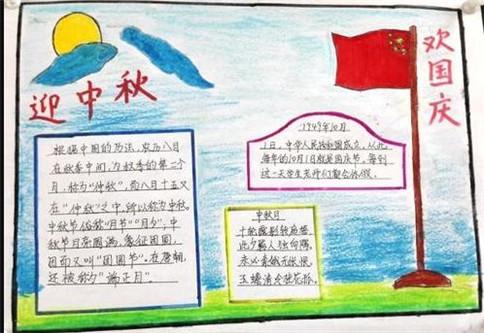 迎中秋
欢国庆
根据中国的历法,农历八月
在秋季中间,为秋季的第二个
月,称为“仲秋”,而八月十五又
在“仲秋”之中,所以称为中秋。
中秋节俗称“月节”“月夕”,中
秋节月亮圆满,象征团圆,
因而又叫“团圆节”。在唐朝,
还被称为“端正月”。
1949年10月
1日,中华人民共和国成立,从此
每年的10月1日就是国庆节,每到
这一天学生老师们都会休假。
中秋月
十轮霜影转庭梧
此夕羁人独向隅
未必素娥无怅恨
玉蟾清冷桂花孤